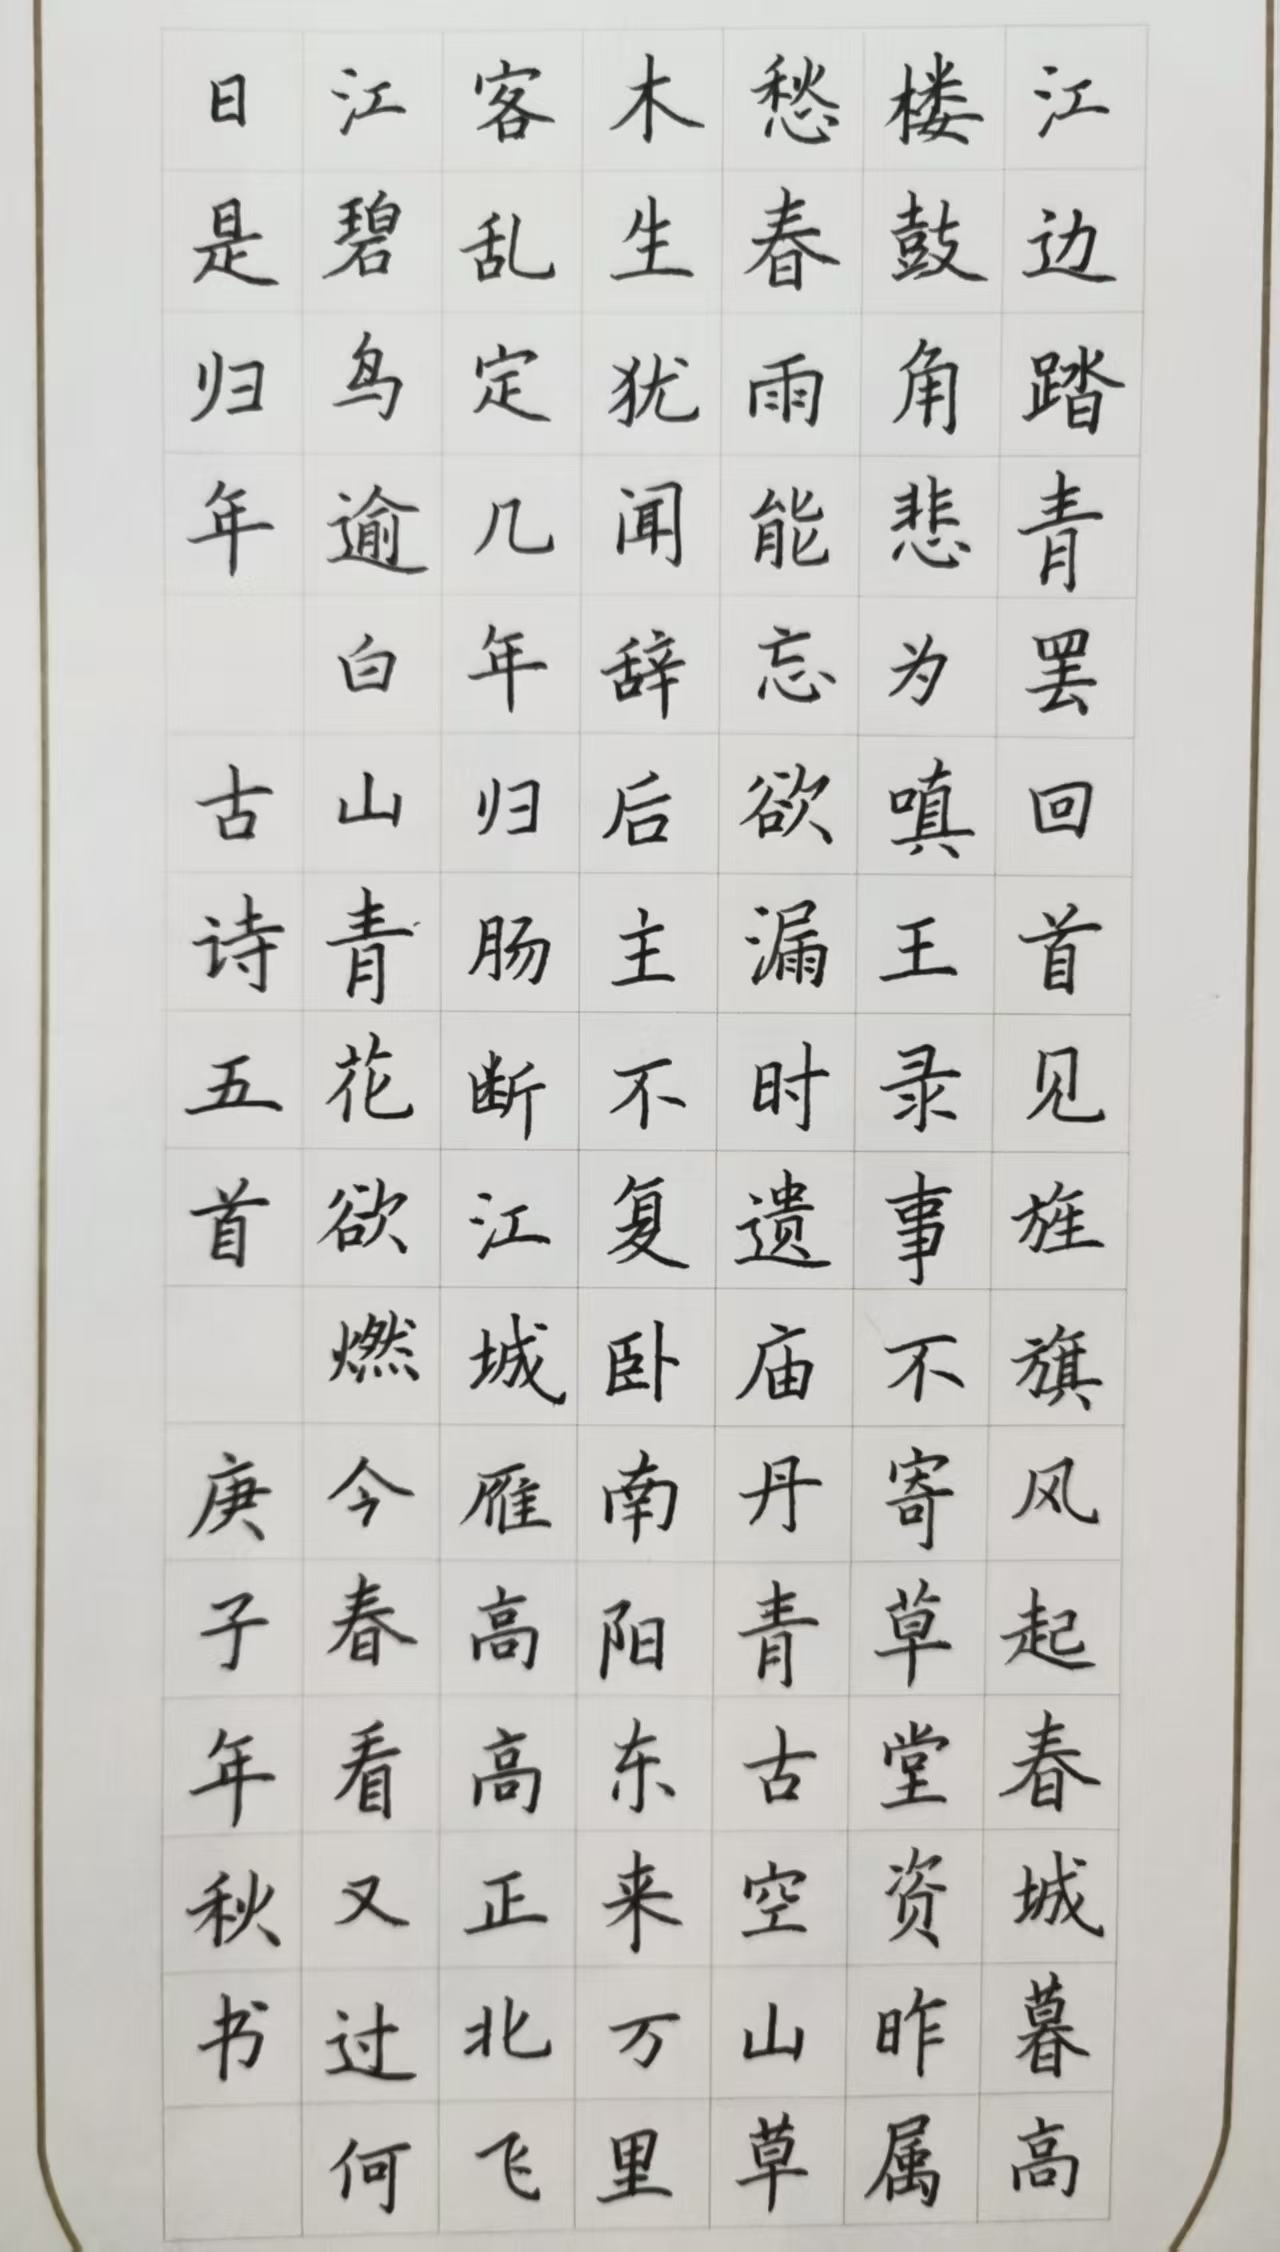 江边踏青罢回首见旌旗风起春城暮高
楼鼓角悲为嗔王录事不寄草堂资昨属
愁春雨能忘欲漏时遗庙丹青古空山草
木生犹闻辞后主不复卧南阳东来万里
客乱定几年归肠断江城雁高高正北飞
江碧鸟逾白山青花欲燃今春看又过何
日是归年 古诗五首 庚子年秋书